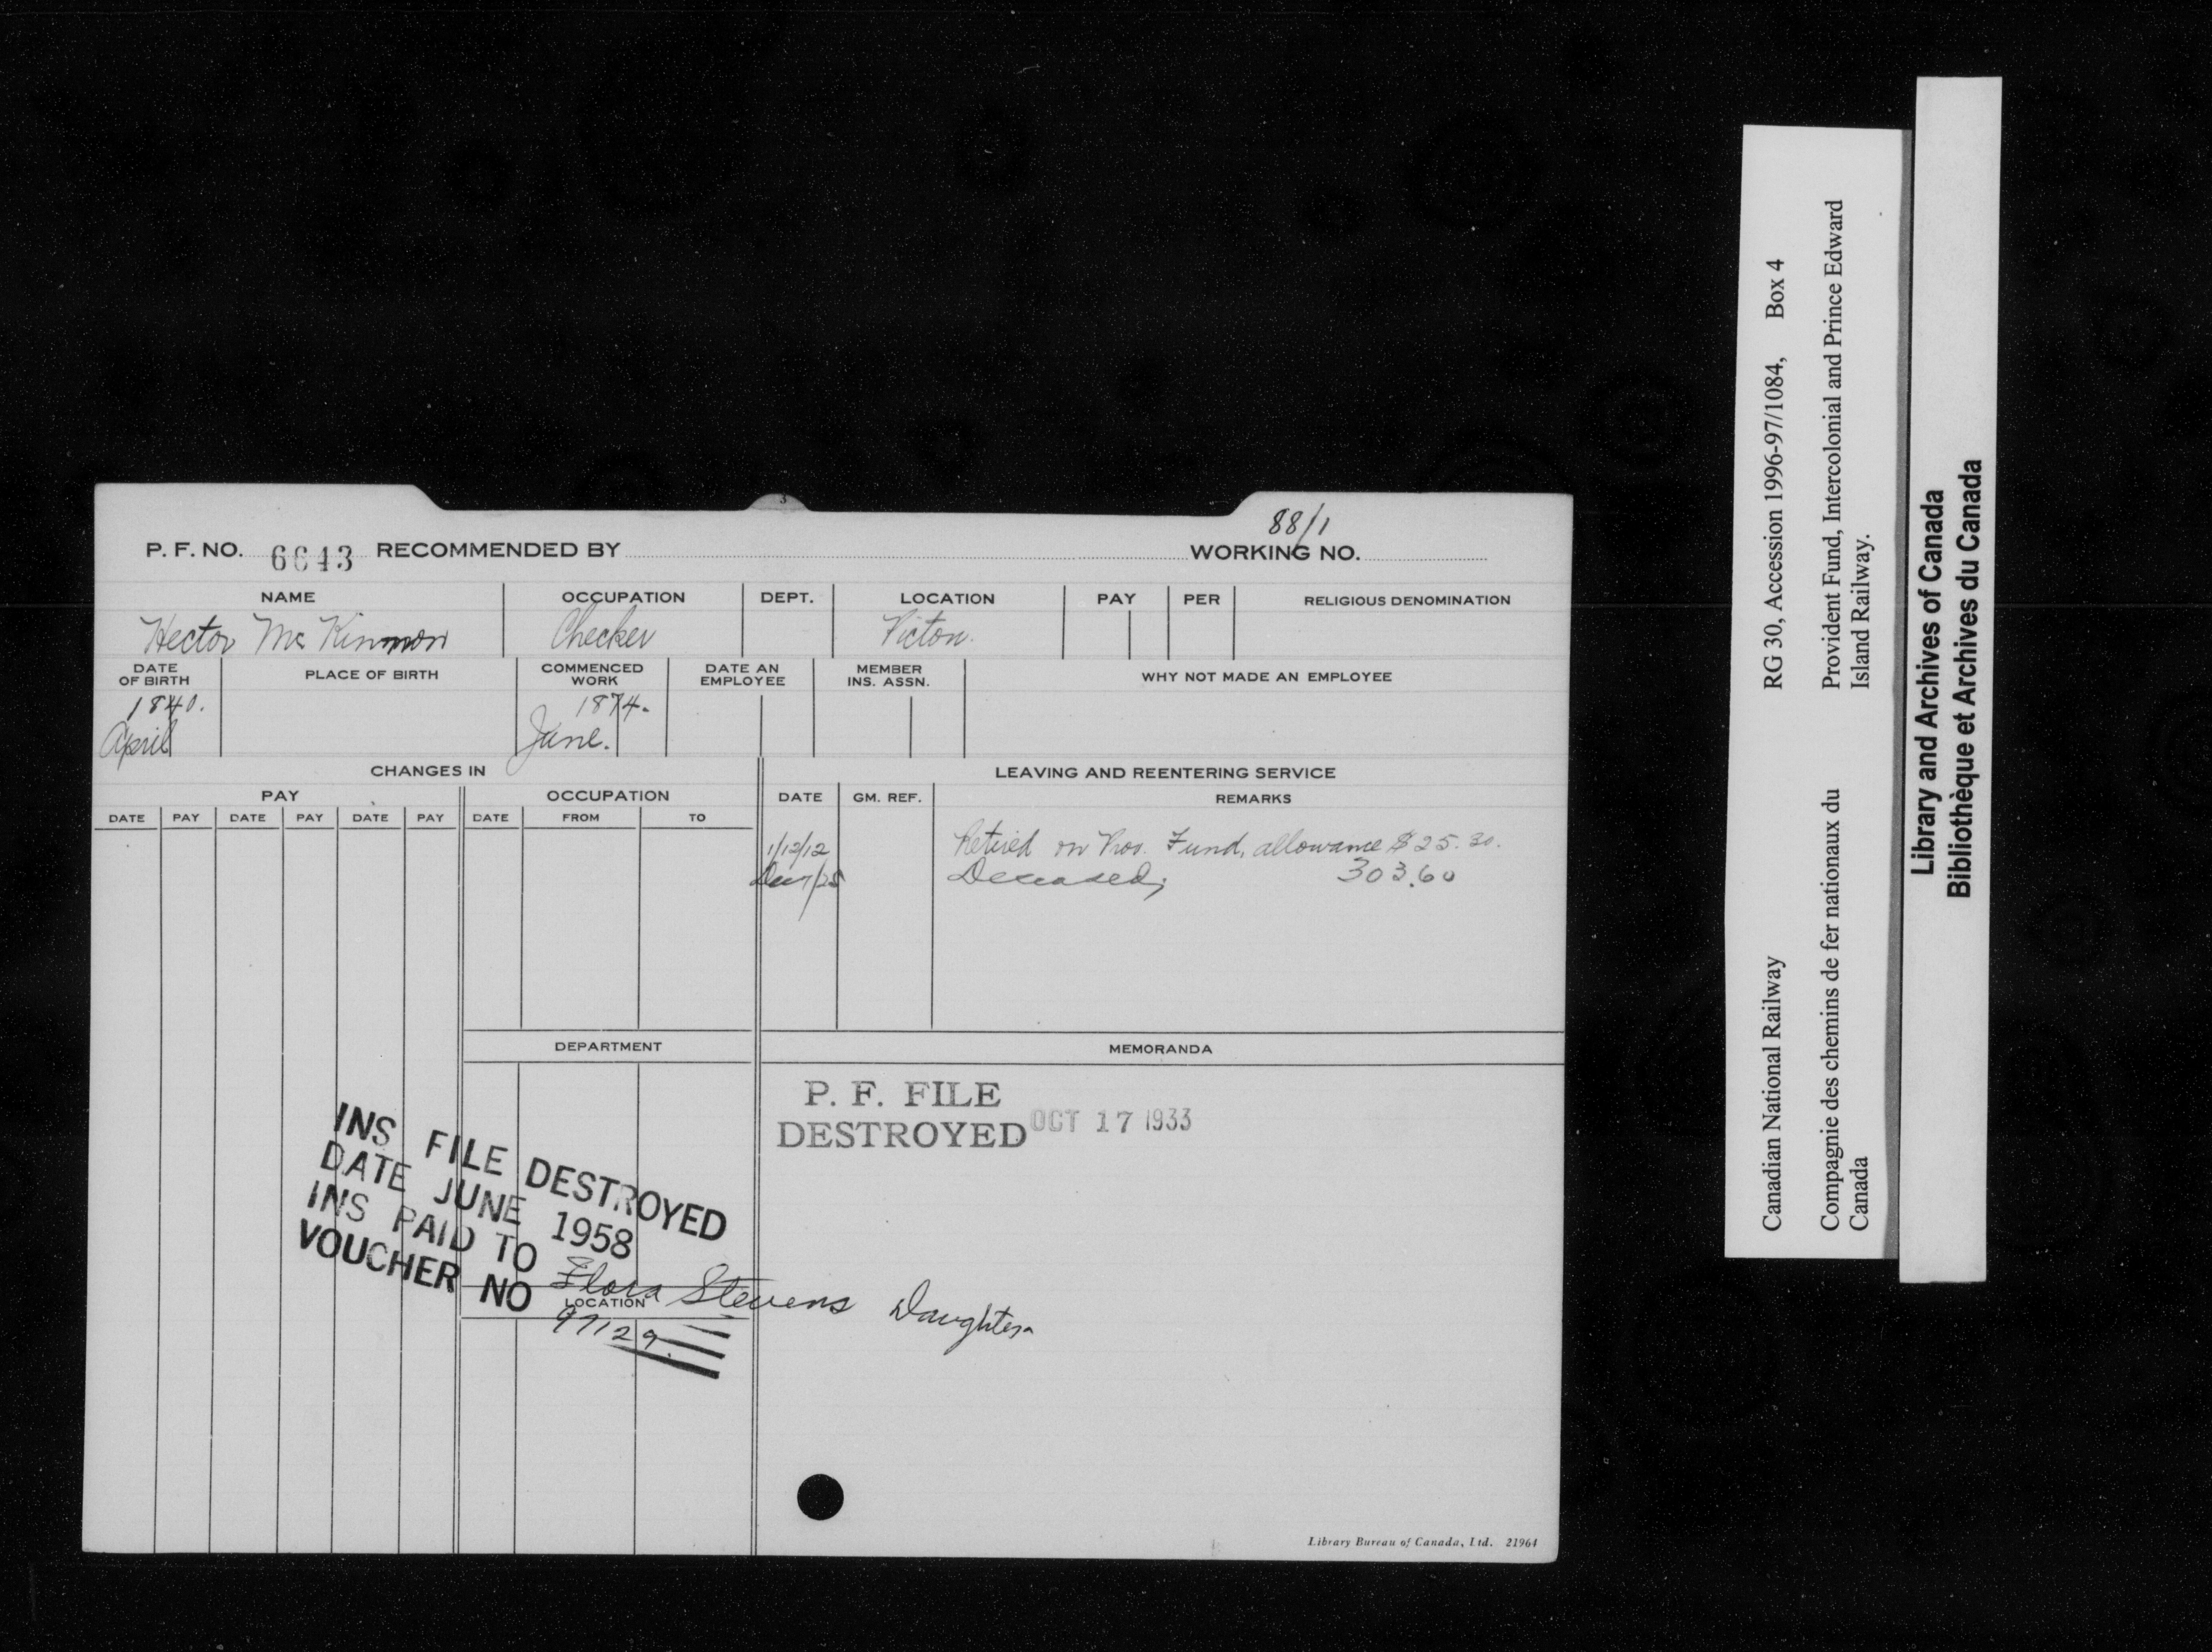 3
88/1
P. F. NO. 6643 RECOMMENDED BY WORKING NO.
NAME OCCUPATION DEPT. LOCATION PAY PER RELIGIOUS DENOMINATION
Hector McKinnon Checker Pictou.
DATE OF BIRTH PLACE OF BIRTH COMMENCED WORK DATE AN EMPLOYEE MEMBER INS. ASSN. WHY NOT MADE AN EMPLOYEE
1840. 1874.
April June.
CHANGES IN LEAVING AND REENTERING SERVICE
PAY OCCUPATION DATE GM. REF. REMARKS
DATE PAY DATE PAY DATE PAY DATE FROM TO
1/12/12 Retired on Prov. Fund, allowance $25.30.
Deceased, 303.60
DEPARTMENT MEMORANDA
P. F. FILE
DESTROYED OCT 17 1933
INS FILE DESTROYED
DATE JUNE 1958
INS PAID TO Flora Stevens Daughter
VOUCHER NO 97129
LOCATION
Library Bureau of Canada, Ltd. 21964
Canadian National Railway RG 30, Accession 1996-97/1084, Box 4
Compagnie des chemins de fer nationaux du Provident Fund, Intercolonial and Prince Edward
Canada Island Railway.
Library and Archives of Canada
Bibliothèque et Archives du Canada